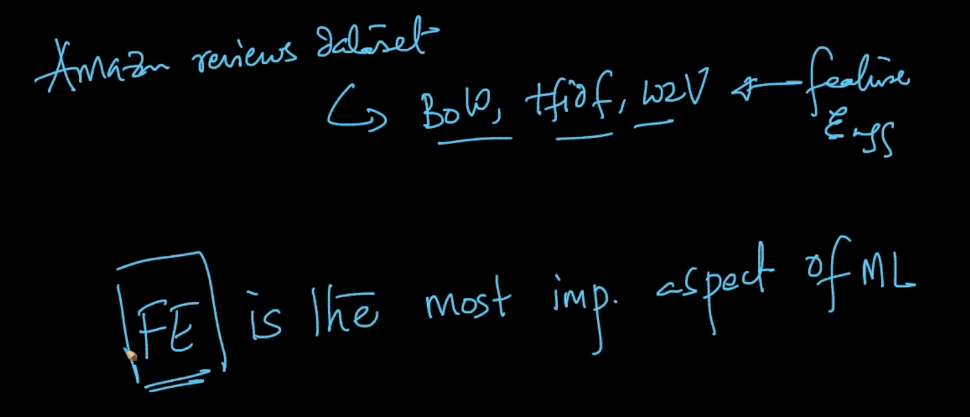 Amazon reviews dataset
↳ BoW, tfidf, w2V ← feature
Engg
FE is the most imp. aspect of ML